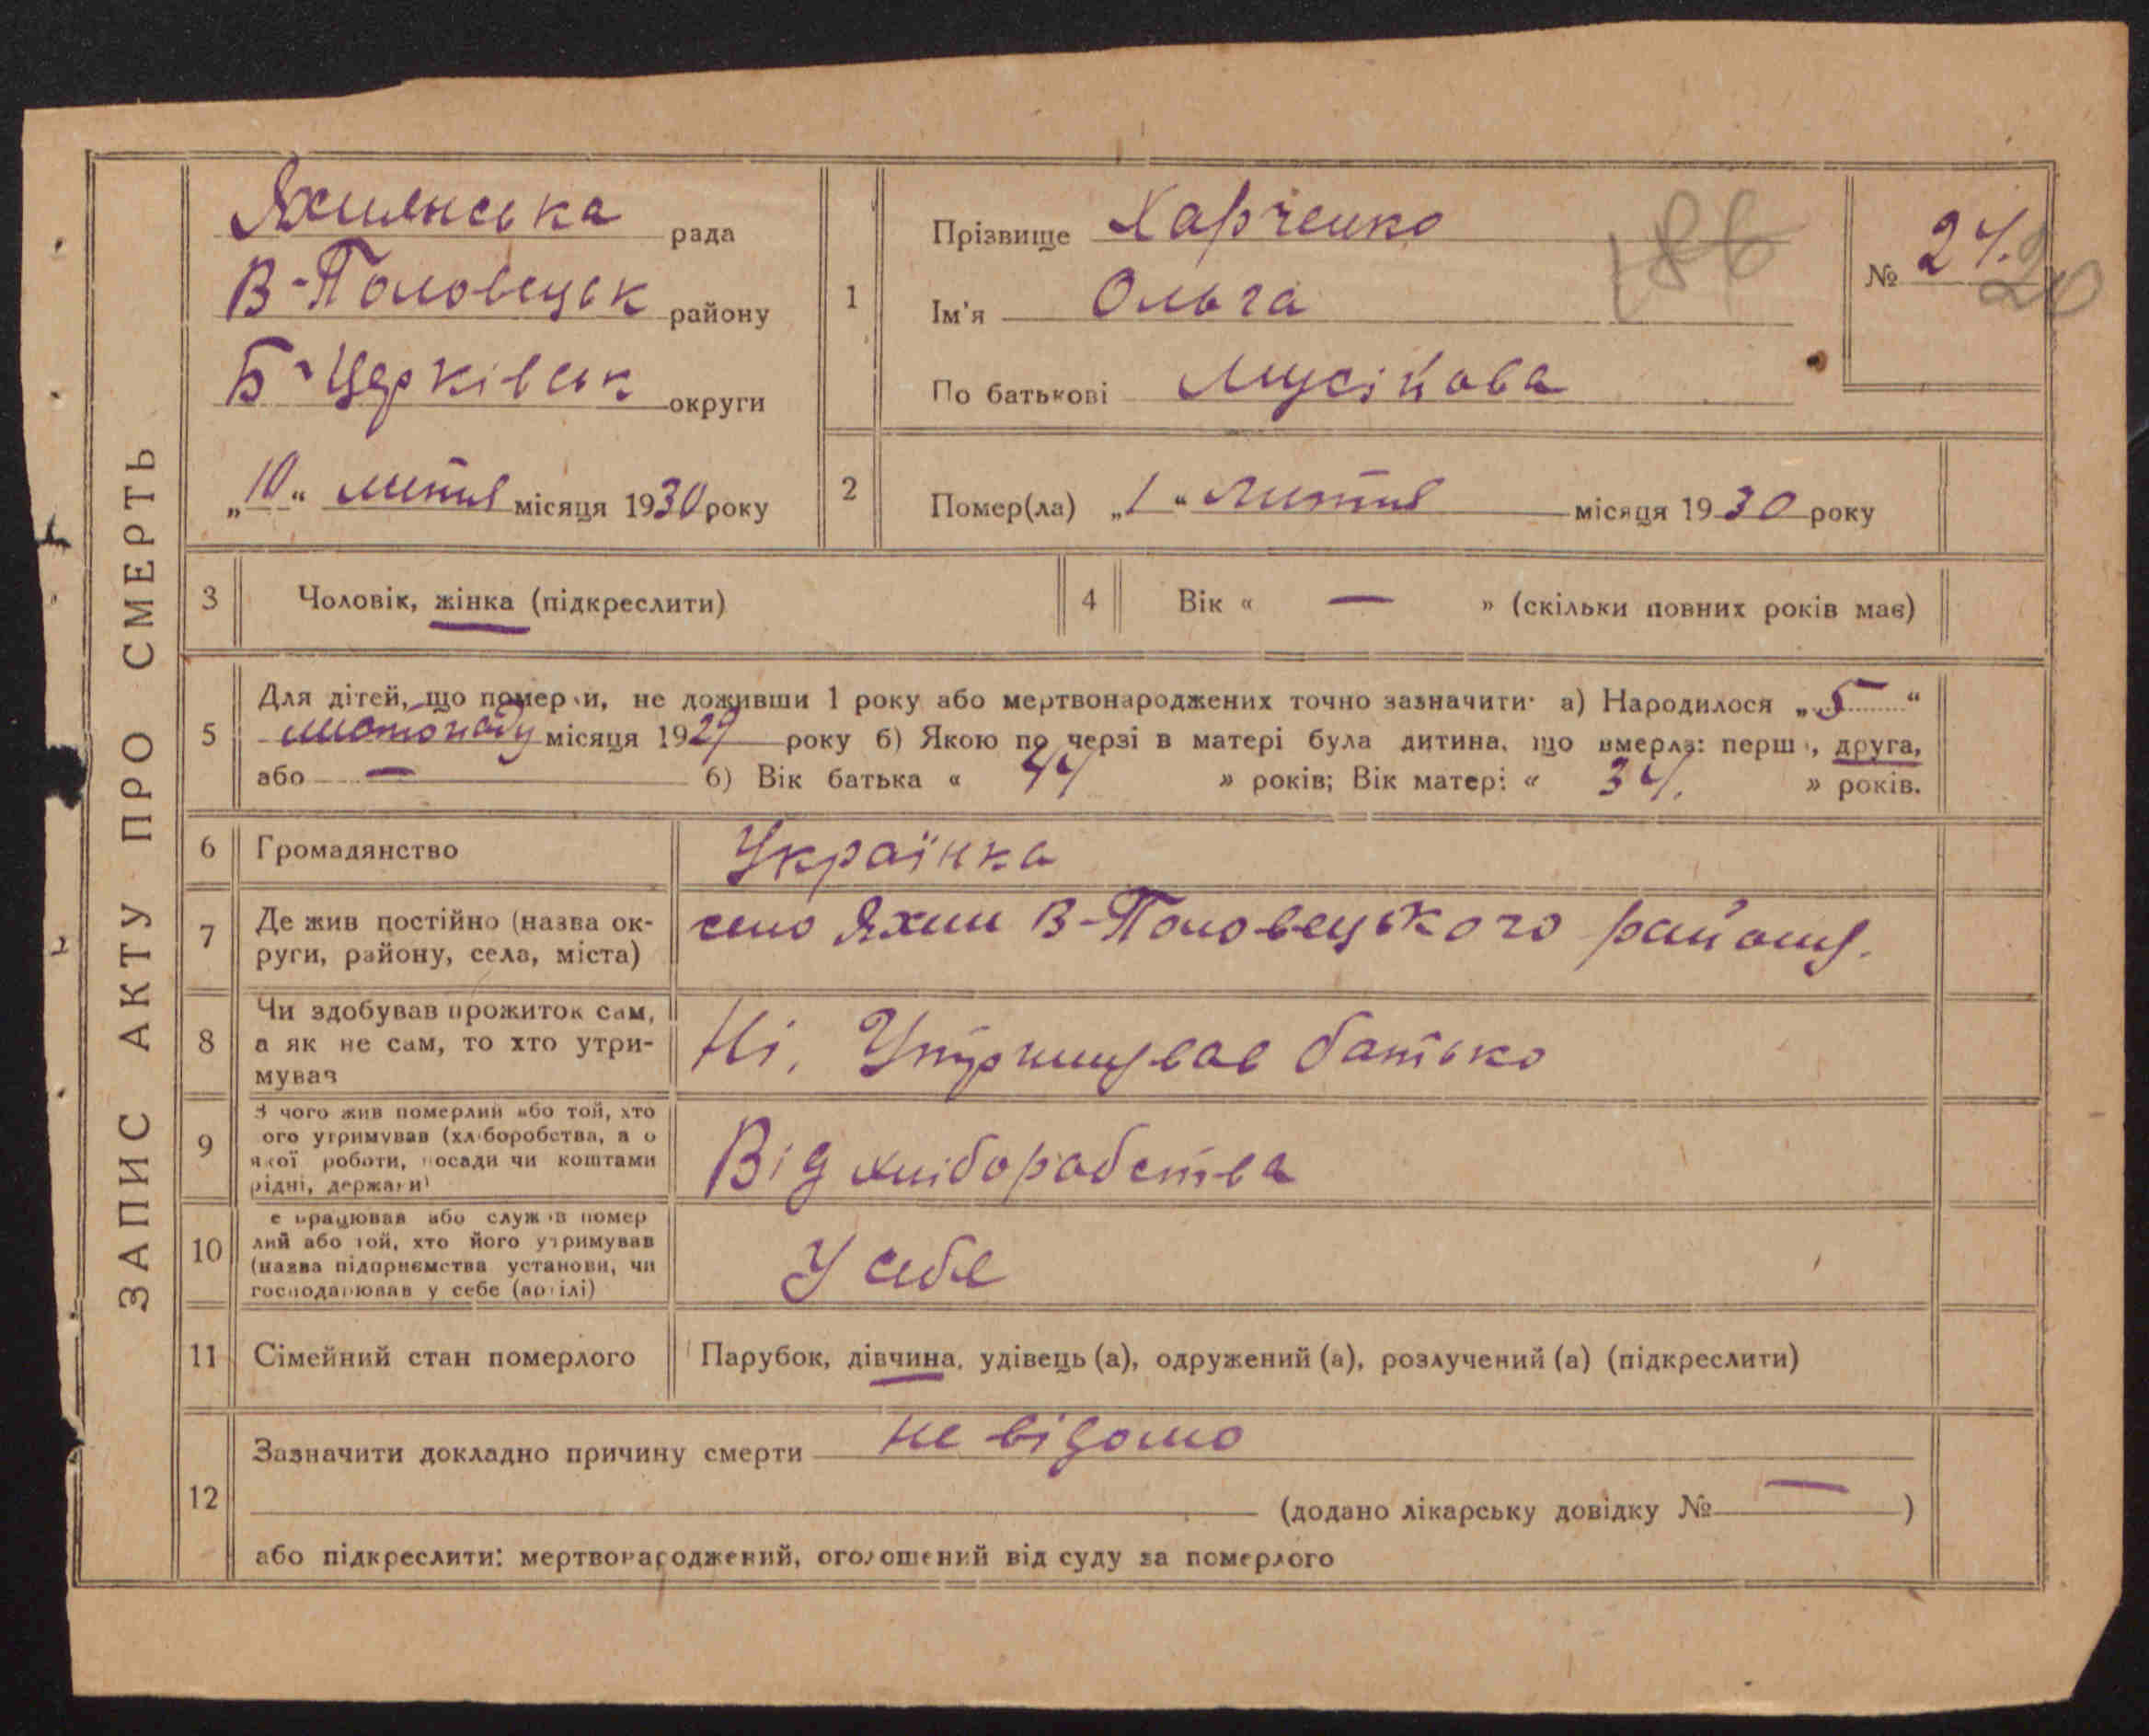 ЗАПИС АКТУ ПРО СМЕРТЬ
Яхнянська рада
В-Половецьк району
Б-Церківськ округи
„10“ лютня місяця 1930 року
1
Прізвище Харченко
Ім'я Ольга
По батькові Мусійова
186
№ 24.
20
2
Помер(ла) „1“ лютня місяця 1930 року
3 Чоловік, жінка (підкреслити)
4 Вік « — » (скільки повних років має)
5
Для дітей, що померли, не доживши 1 року або мертвонароджених точно зазначити: а) Народилося „5“
листопаду місяця 1929 року б) Якою по черзі в матері була дитина, що вмерла: перша, друга,
або — б) Вік батька « 44 » років; Вік матері « 34. » років.
6 Громадянство Українка
7 Де жив постійно (назва ок-
руги, району, села, міста)
село Яхни В-Половецького району.
8 Чи здобував прожиток сам,
а як не сам, то хто утри-
мував
Ні, Утримував батько
9 З чого жив померлий або той, хто
ого утримував (хліборобства, а о
якої роботи, посади чи коштами
рідні, держави)
Від хліборобства
10 е працював або служив помер
лий або той, хто його утримував
(назва підприємства установи, чи
господарював у себе (артілі)
У себе
11 Сімейний стан померлого Парубок, дівчина, удівець (а), одружений (а), розлучений (а) (підкреслити)
12
Зазначити докладно причину смерти не відомо
(додано лікарську довідку № — )
або підкреслити: мертвонароджений, оголошений від суду за померлого